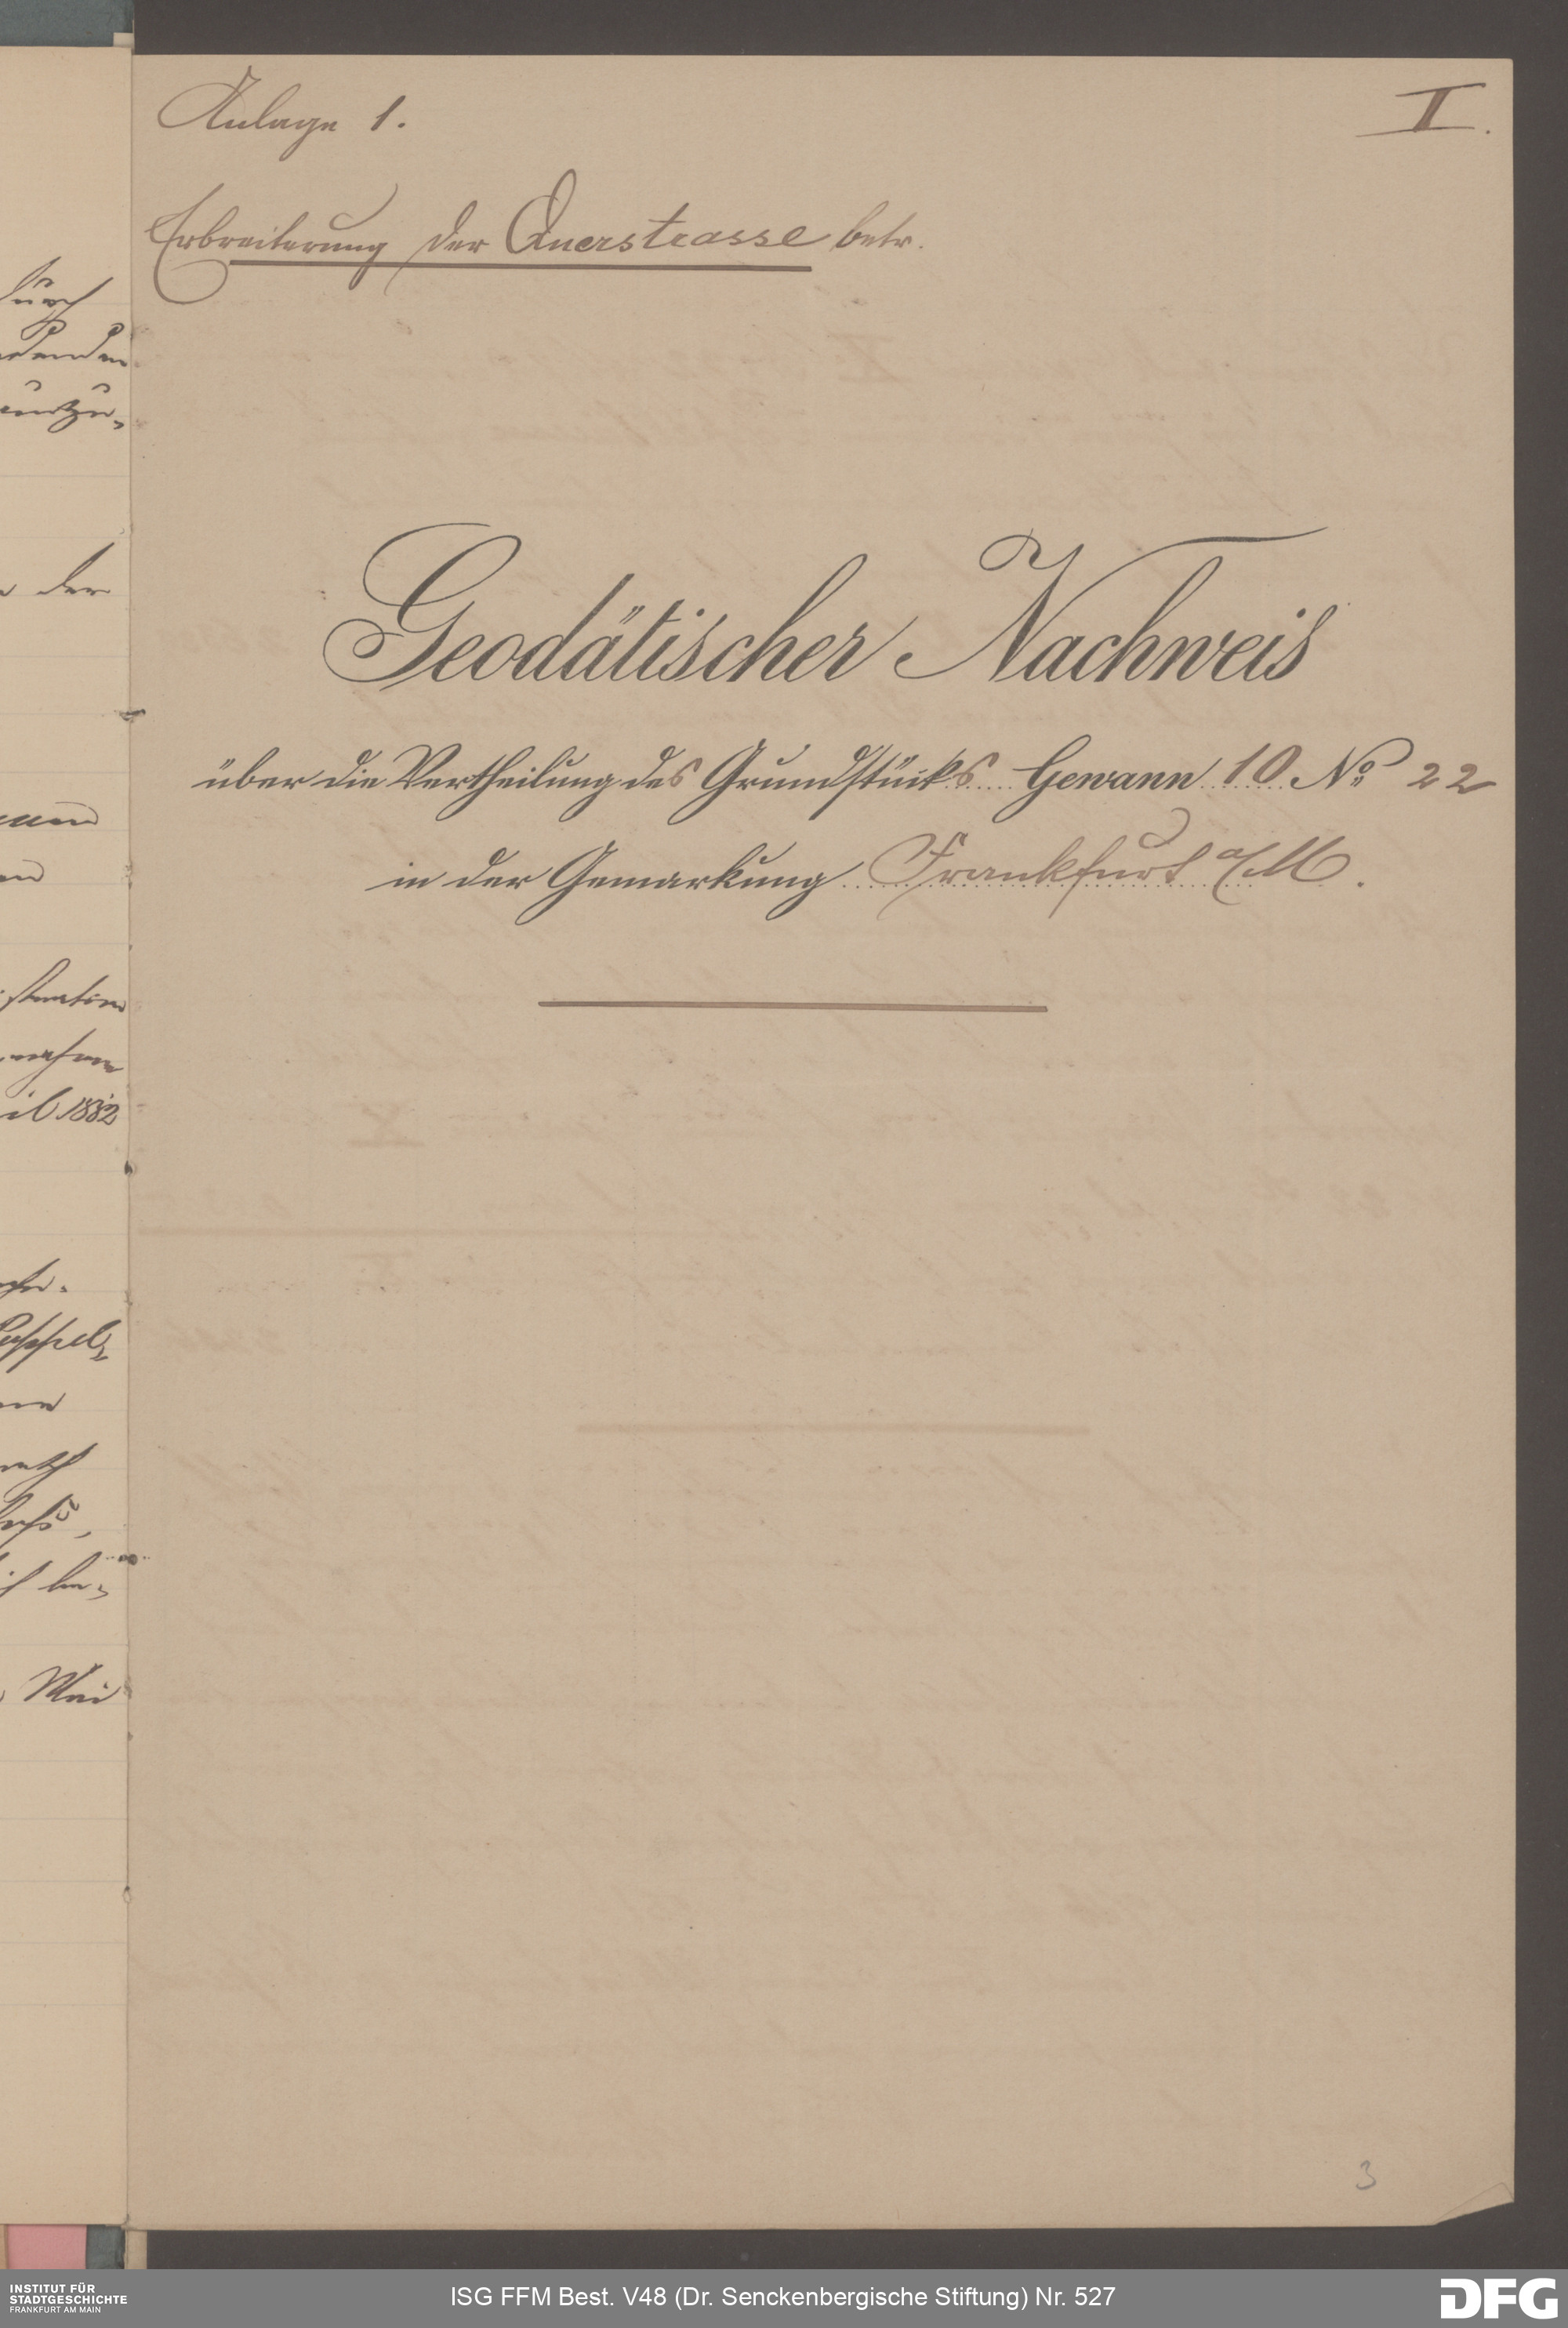 Anlage 1.
I.
Erbreiterung der Querstrasse betr.
Geodätischer Nachweis
über die Vertheilung des Grundstücks Gewann 10 No 22
in der Gemarkung Frankfurt a/M.
durch
der
il 1882
Mai
3
INSTITUT FÜR
STADTGESCHICHTE
FRANKFURT AM MAIN
ISG FFM Best. V48 (Dr. Senckenbergische Stiftung) Nr. 527
DFG